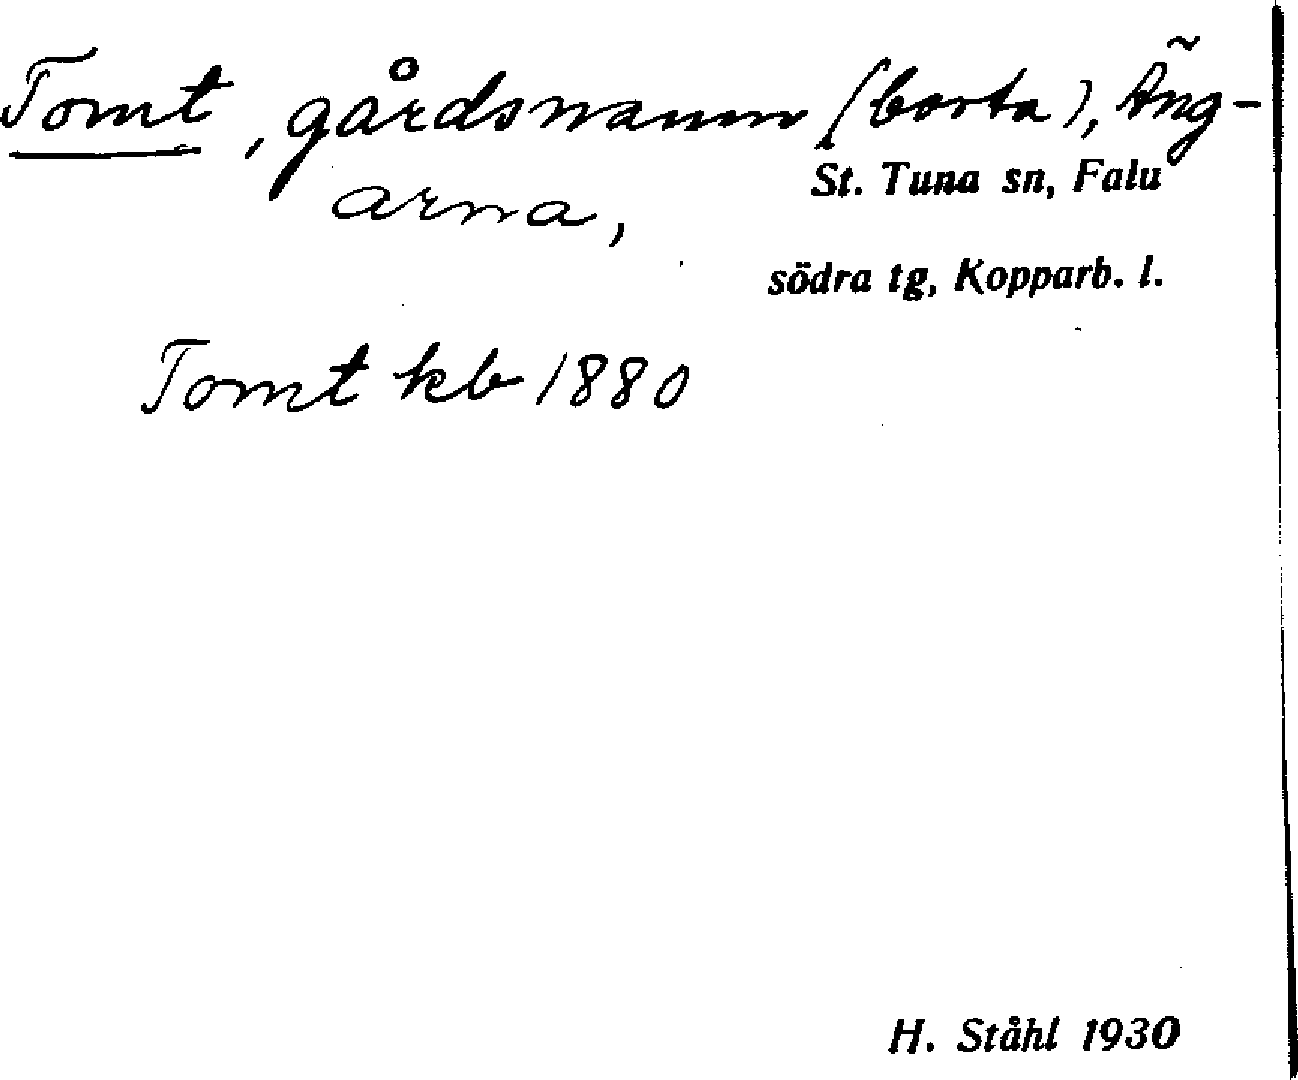 Tomt, gårdsnamn (borta), Äng-
arna,
St. Tuna sn, Falu
södra tg, Kopparb. l.
Tomt kb 1880
H. Ståhl 1930